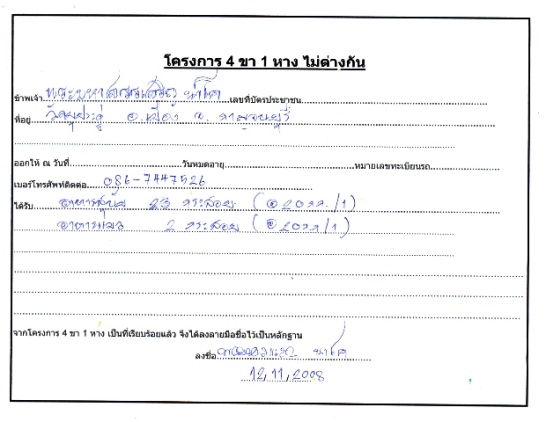 โครงการ 4 ขา 1 หาง ไม่ต่างกัน
ข้าพเจ้า พระมหา เลขที่บัตรประชาชน
ที่อยู่ อ.เมือง จ. กาญจนบุรี
ออกให้ ณ วันที่ วันหมดอายุ หมายเลขทะเบียนรถ
เบอร์โทรศัพท์ติดต่อ 086-7447526
ได้รับ อาหารสุนัข 23 กระสอบ (@ 20 กก./1)
อาหารแมว 2 กระสอบ (@ 20 กก/1)
จากโครงการ 4 ขา 1 หาง เป็นที่เรียบร้อยแล้ว จึงได้ลงลายมือชื่อไว้เป็นหลักฐาน
ลงชื่อ
12, 11, 2008